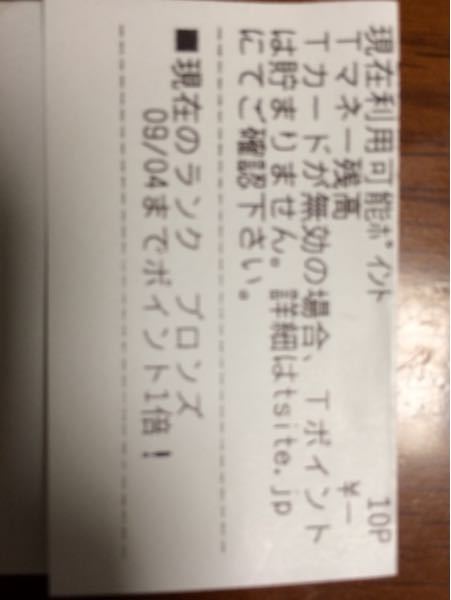 現在利用可能ポイント 10P
Tマネー残高 ¥ー
Tカードが無効の場合、Tポイント
は貯まりません。詳細はtsite.jp
にてご確認下さい。
■現在のランク ブロンズ
09/04までポイント1倍！